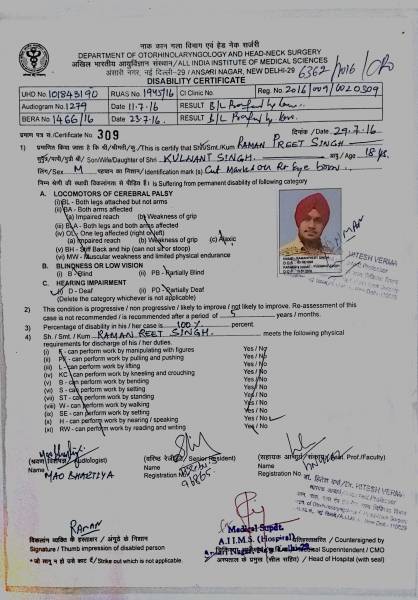 नाक कान गला विभाग एवं हेड नेक सर्जरी
DEPARTMENT OF OTORHINOLARYNGOLOGY AND HEAD-NECK SURGERY
अखिल भारतीय आयुर्विज्ञान संस्थान / ALL INDIA INSTITUTE OF MEDICAL SCIENCES
अंसारी नगर, नई दिल्ली-29 / ANSARI NAGAR, NEW DELHI-29
DISABILITY CERTIFICATE
UHD No. 101843190 RUAS No. 1945/16 Cl Clinic No. Reg. No. 2016/007/0020309
Audiogram No. 1279 Date 11.7.16 RESULT B/L Profound
BERA No. 1466/16 Date 23.7.16 RESULT B/L Profound
प्रमाण पत्र सं./Certificate No. 309 दिनांक / Date 29.7.16
1) प्रमाणित किया जाता है कि श्री/श्रीमती/कु./This is certify that Sh/Smt./Kum RAMAN PREET SINGH
Son/Wife/Daughter of Shri KULWANT SINGH आयु / Age 18 yrs.
लिंग/Sex M पहचान का निशान/ Identification mark(s) Cut Marked on Rt eye
निम्न श्रेणी की स्थायी विकलांगता से पीड़ित हैं। is Suffering from permanent disability of following category
A. LOCOMOTORS OF CEREBRAL PALSY
(i) BL - Both legs affected but not arms
(ii) BA - Both arms affected
(a) Impaired reach (b) Weakness of grip
(iii) BLA - Both legs and both arms affected
(iv) OL - One leg affected (right or left)
(a) Impaired reach (b) Weakness of grip (c) Ataxic
(v) BH - Stiff Back and hip (can not sit or stoop)
(vi) MW - Muscular weakness and limited physical endurance
B. BLINDNESS OR LOW VISION
(i) B - Blind (ii) PB - Partially Blind
C. HEARING IMPAIRMENT
(i) D - Deaf (ii) PD - Partially Deaf
(Delete the category whichever is not applicable)
2) This condition is progressive / non progressive / likely to improve / not likely to improve. Re-assessment of this
case is not recommended / is recommended after a period of 5 years / months.
3) Percentage of disability in his / her case is 100% percent.
4) Sh. / Smt. / Kum RAMAN PREET SINGH meets the following physical
requirements for discharge of his / her duties.
(i) F - can perform work by manipulating with figures Yes / No
(ii) PP - can perform work by pulling and pushing Yes / No
(iii) L - can perform work by lifting Yes / No
(iv) KC - can perform work by kneeling and crouching Yes / No
(v) B - can perform work by bending Yes / No
(vi) S - can perform work by setting Yes / No
(vii) ST - can perform work by standing Yes / No
(viii) W - can perform work by walking Yes / No
(ix) SE - can perform work by setting Yes / No
(x) H - can perform work by nearing / speaking Yes / No
(xi) RW - can perform work by reading and writing Yes / No
(Audiologist) (Senior Resident) (Prof./Faculty)
Name MAO BHARTIYA Name Name
Registration No. 96865 Registration No.
Dr. HITESH VERMA
RAMAN
Medical Supdt.
A.I.I.M.S. (Hospital)
विकलांग व्यक्ति के हस्ताक्षर / अंगूठे के निशान प्रतिहस्ताक्षरित / Countersigned by
Signature / Thumb impression of disabled person Medical Superintendent / CMO
* जो लागू न हो उसे काट दें / Strike out which is not applicable. अस्पताल के प्रमुख (सील सहित) / Head of Hospital (with seal)